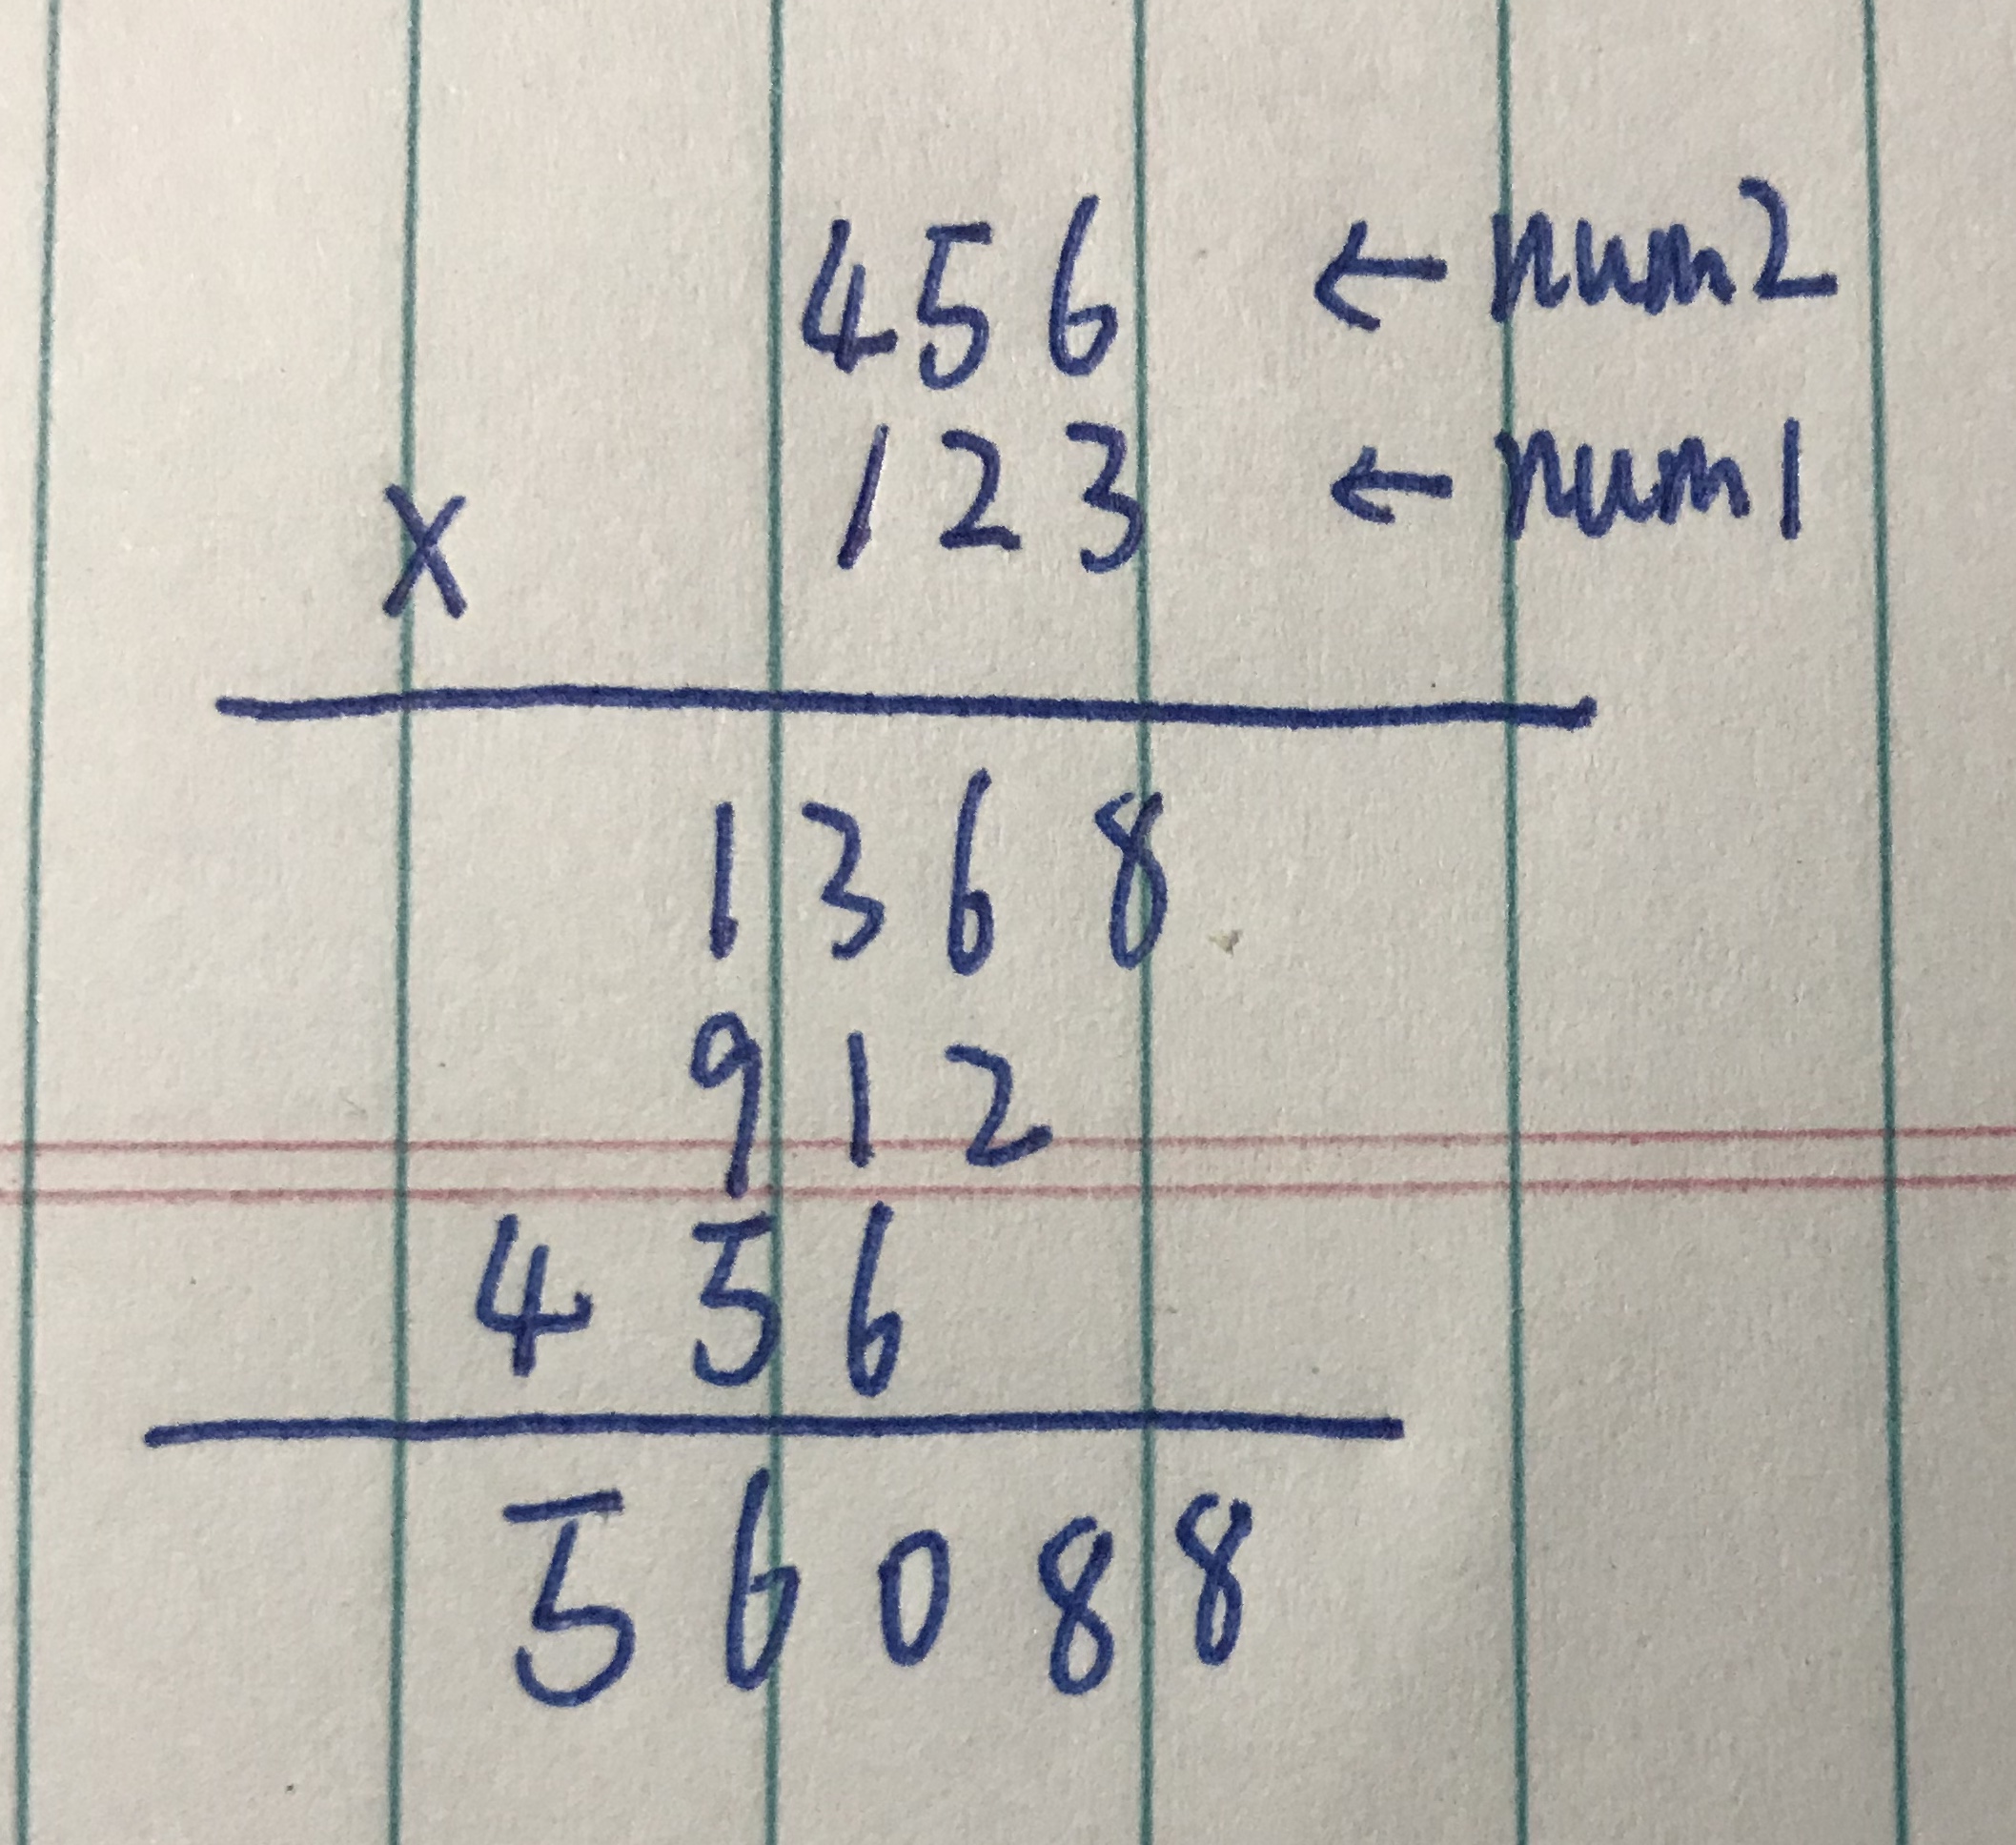 456 ← num2
x 123 ← num1
1368
912
456
56088